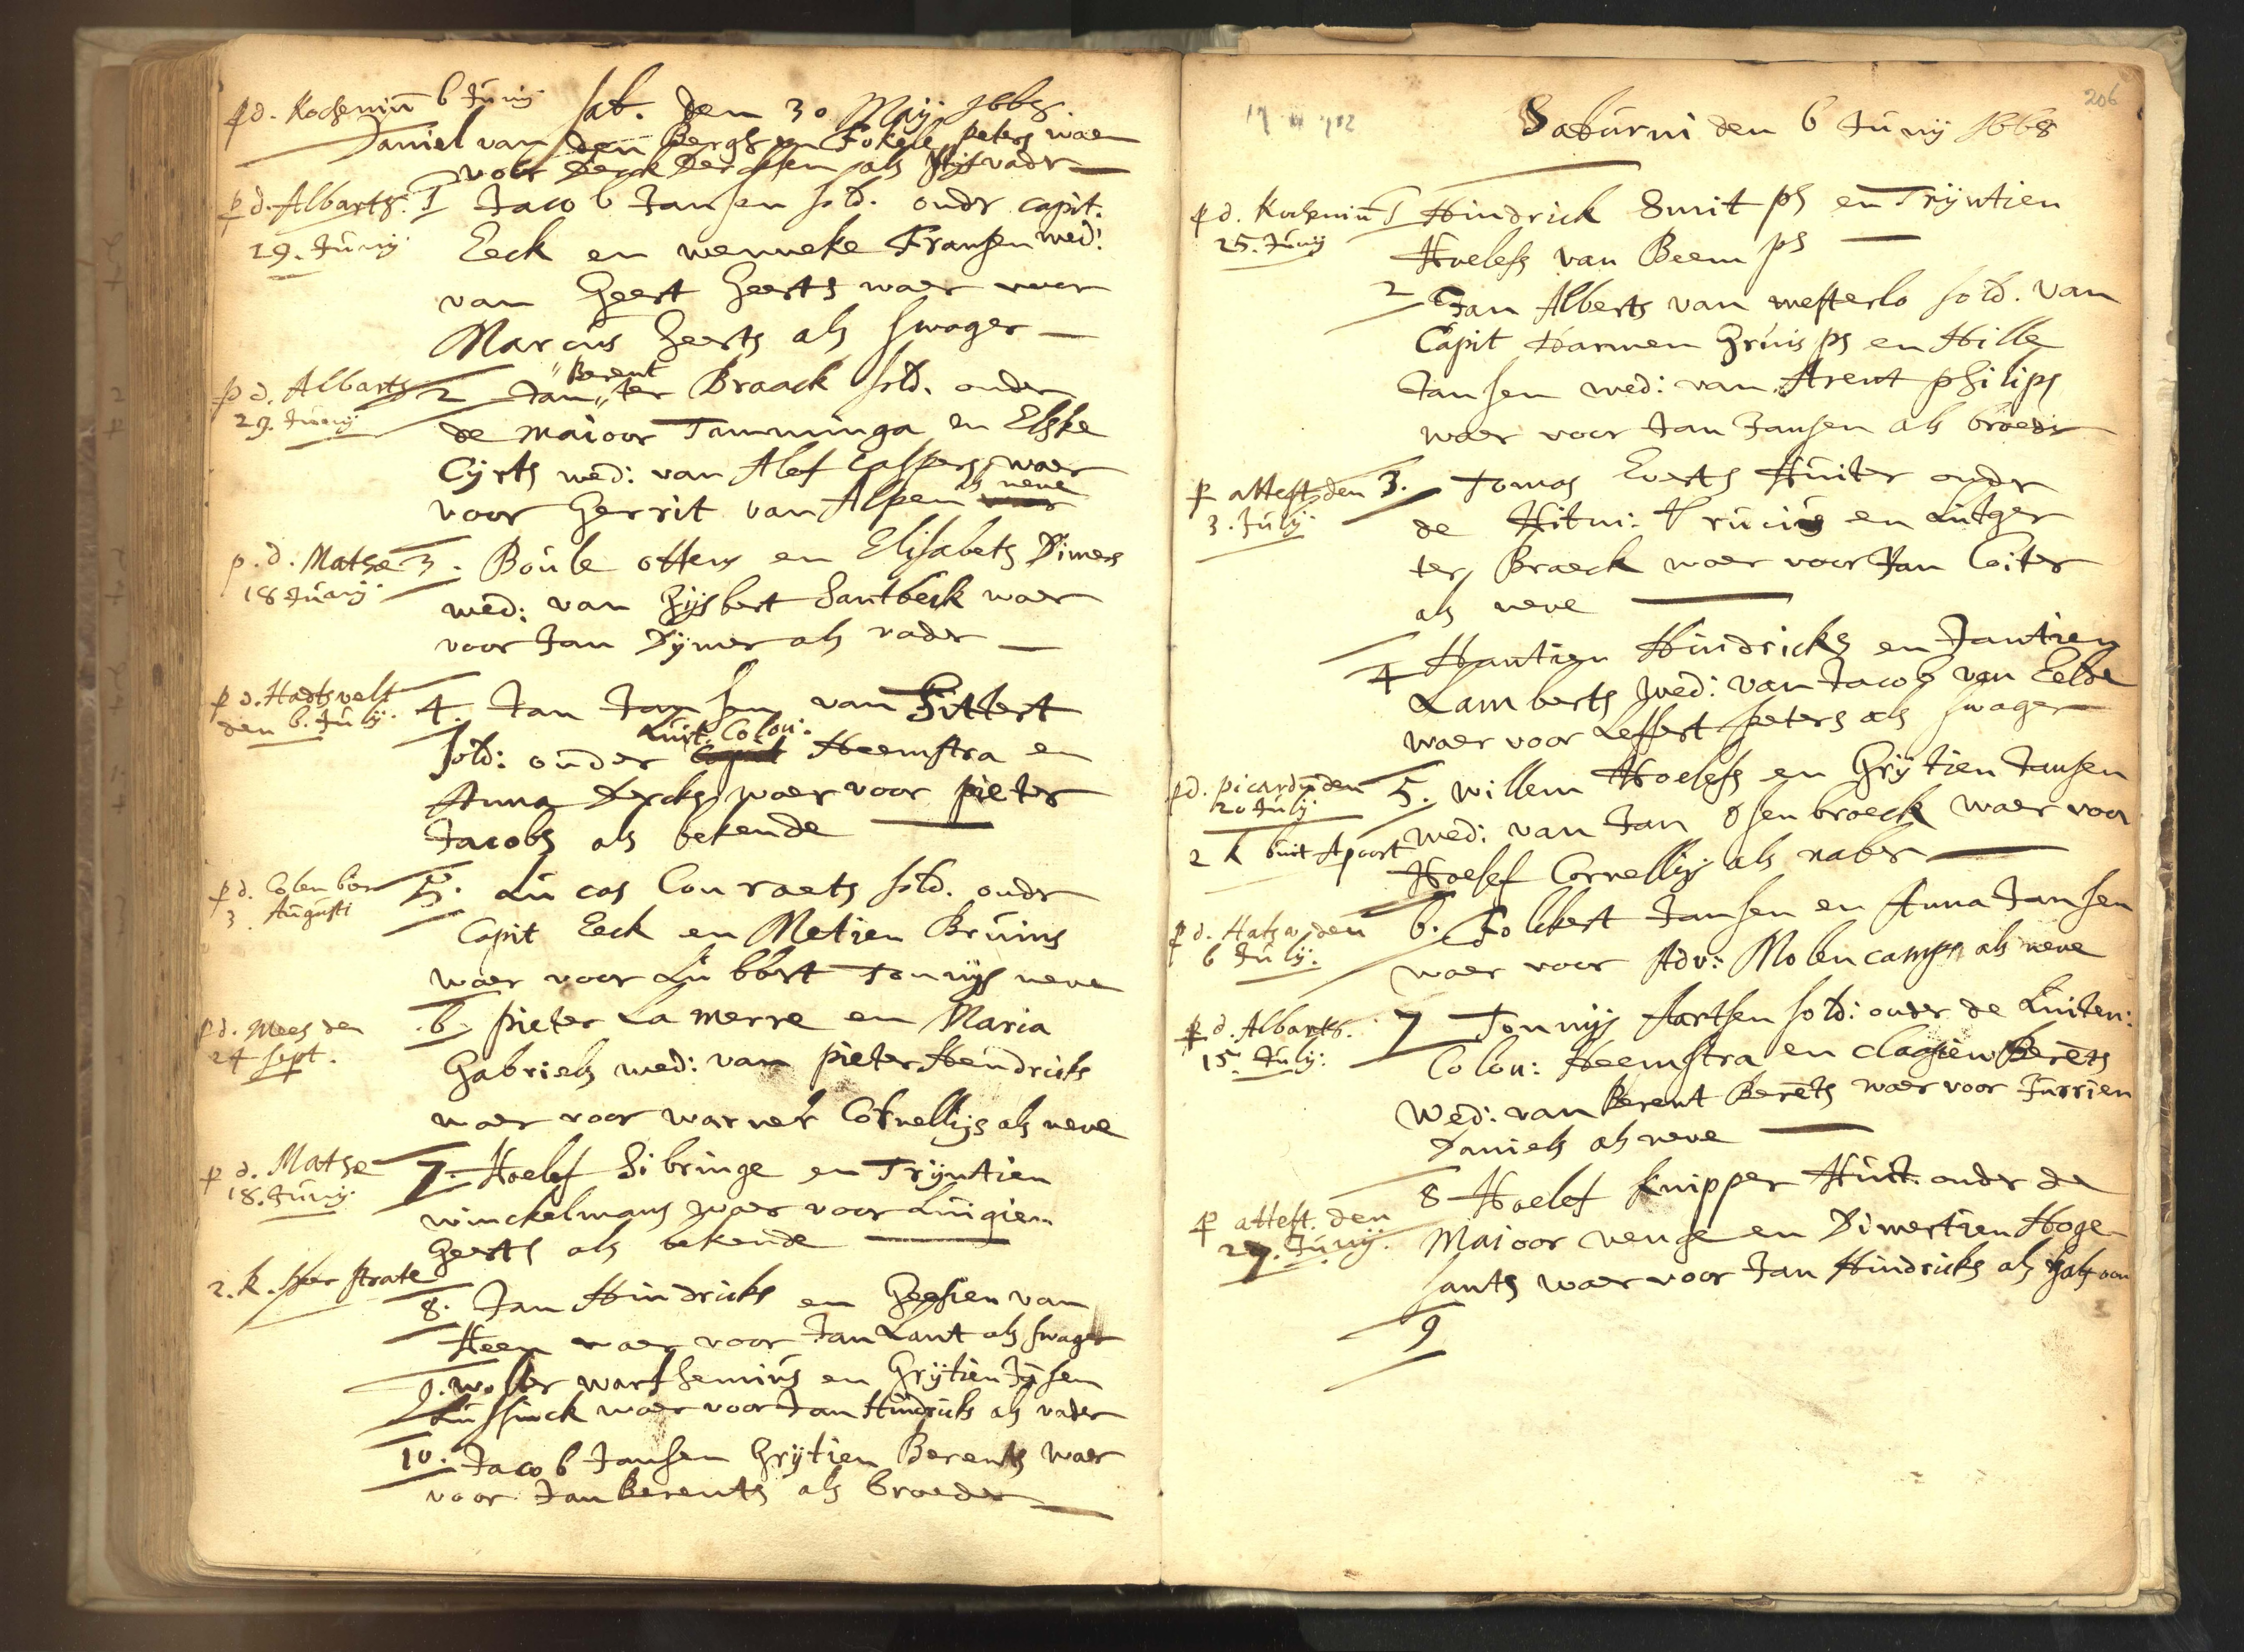 p d. Kochemiu 6 Junij
Sat. den 30 Maij 1668
Daniel van den Bergh en Fokele peters waer
voor Derck Dercksen als stijfvadr
p d. Albarts. 29. Junij
1 Jacob Jansen sold. ondr capit.
Eeck en wenneke Fransen wed:
van Geert Geerts waer voor
Marcus Geerts als swager
p d. Albarts 29. Junij
2 Jan Berent ter Braack sold. onder
de maioor Tamminga en Elske
Cyrts wed: van Alef Caspers waer
voor Gerrit van Alpen als neve
p. d. Mathae 18 Junij
3. Boule ottens en Elisabets Dimers
wed: van Gijsbert Santbeck waer
voor Jan Dijmer als vader
p d. Hartsvelt den 6. Julij.
4. Jan Jansen van Sittert
sold: onder Luit. Colon: Heemstra en
Anna Dercks waer voor pieter
Jacobs als bekende
p d. Colenbor 3 Augusti
5. Lucas Conraets sold. ondr
Capit Eeck en Metien Bruins
waer voor Lubbert Tonnijs neve
p d. Mees den 24 sept.
6. pieter La merre en Maria
Gabriels wed: van pieter Hendricks
waer voor warner Cornellijs als neve
p d. Mathae 18. Junij.
7. Roelef Sibringe en Trijntien
winckelmans waer voor Luigien
Geerts als bekende
2. k. Her strate
8. Jan Hindricks en Geesien van
Heen waer voor Jan Lant als swager
9. wolter warshemius en Grijtien Tijsen
Lussinck waer voor Jan Hindricks als vader
10. Jacob Jansen Grijtien Berents waer
voor Jan Berents als broeder
206
Saturni den 6 Junij 1668
p d. Kochemiu 25. Junij
1 Hindrick Smit ps en Trijntien
Roelefs van Beem ps
2 Jan Alberts van westerlo sold. van
Capit Harmen Gruis ps en Hille
Jansen wed: van Arent philips
waer voor Jan Jansen als broedr
p attest. den 3. Julij.
3. Tomas Everts Ruiter ondr
de Ritm: Trucis en Lutger
ter Braeck waer voor Jan Coiter
als neve
4 Hantien Hindricks en Jantien
Lamberts wed: van Jacob van Eelde
waer voor Leffert peters als swager
p d. picardu den 20 Julij
2 k buit Apoort
5. willem Roelefs en Grijtien Jansen
wed: van Jan Osenbroeck waer voor
Roelef Cornellijs als naber
p d. Matha. den 6 Julij.
6. Folckert Jansen en Anna Jansen
waer voor Adv: Molencamp als neve
p d. Albarts. 15. Julij:
7 Tonnijs Aartsen sold: onder de Luiten:
Colon: Heemstra en clagien Berēts
Wed: van Berent Berēts waer voor Jurrien
Daniels als neve
p attest. den 27. Junij.
8 Roelef knipper Ruit. onder de
Maioor venge en Dimertien Hoge-
sants waer voor Jan Hindricks als halfoom
9